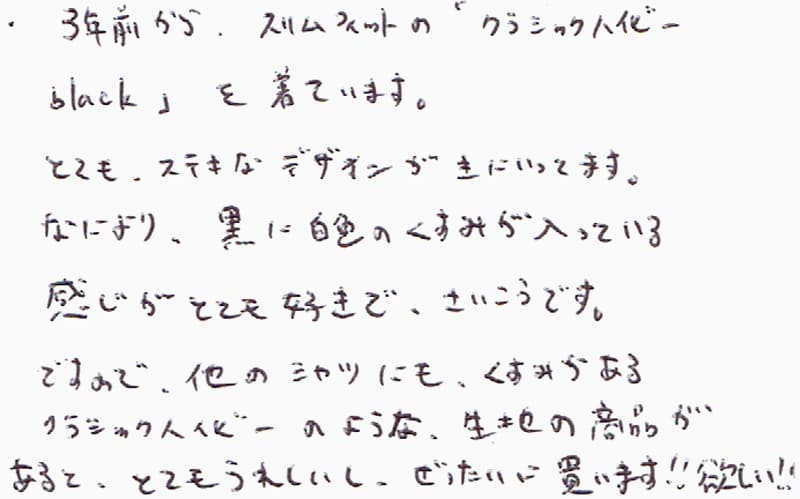 ・3年前から、スリムフィットの「クラシックヘイビー
black」を着ています。
とても、ステキなデザインがきにいってます。
なにより、黒に白色のくすみが入っている
感じがとても好きで、さいこうです。
ですので、他のシャツにも、くすみがある
クラシックヘイビーのような、生地の商品が
あると、とてもうれしいし、ぜったいに買います!!欲しい!!